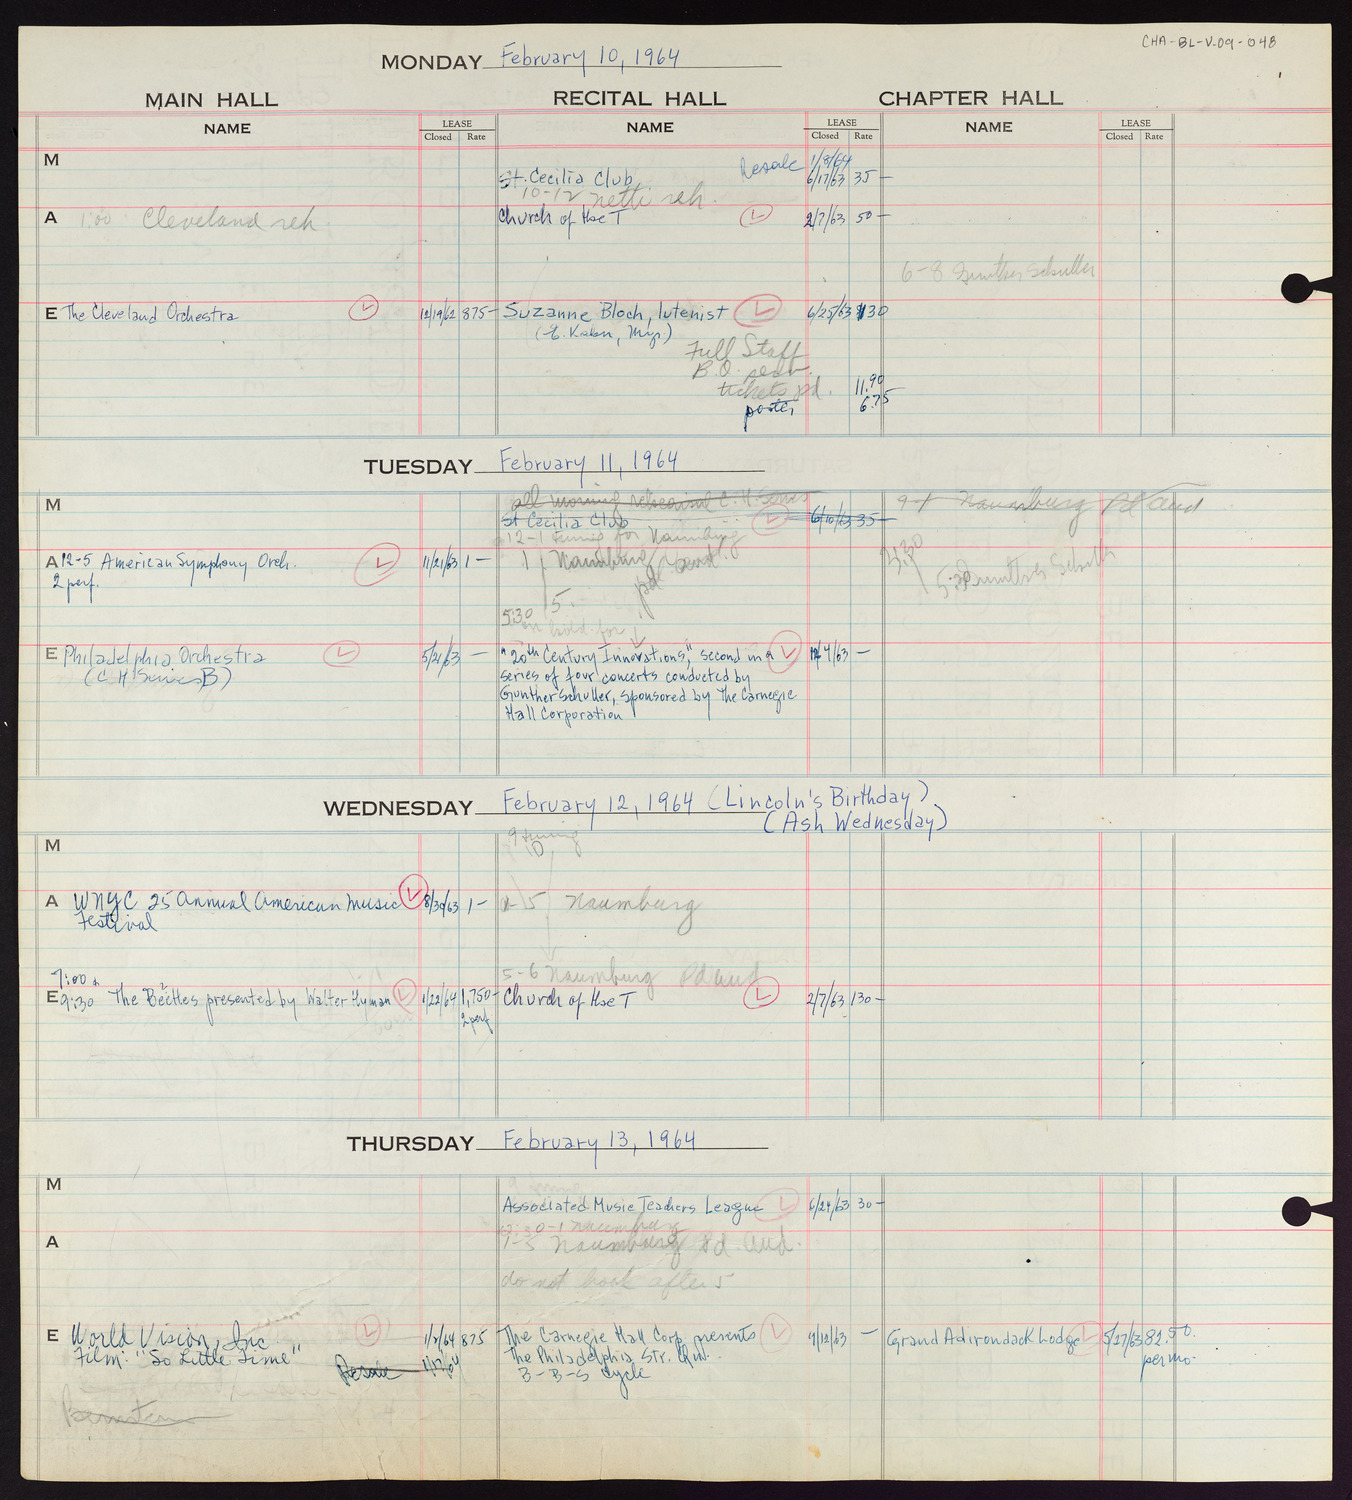 CHA-BL-V.09-048
MONDAY February 10, 1964
MAIN HALL RECITAL HALL CHAPTER HALL
NAME LEASE Closed Rate NAME LEASE Closed Rate NAME LEASE Closed Rate
M
St. Cecilia Club Resale 1/8/64
6/17/63 35 —
10-12 Netti reh.
A 1:00 Cleveland reh Church of Hse T 2/7/63 50 —
6-8 Gunther Schuller
E The Cleveland Orchestra 12/19/62 875 — Suzanne Bloch, lutenist 6/25/63 130
(N. Kahn, Mgr)
Full Staff
B.O.
tickets pd. 11.90
poster 6.75
TUESDAY February 11, 1964
M all morning rehearsal C.H. Series 9-1 Naumburg pd Aud
St Cecilia Club 6/10/63 35 —
12-1 tuning for Naumburg
A 12-5 American Symphony Orch. 11/21/63 1 — 1 Naumburg Aud 3:30
2 perf. 5 pd 5:30 Gunther Schuller
5:30 on hold for
E Philadelphia Orchestra 5/21/63 — "20th Century Innovations," second in a 12/4/63 —
(C H Series B) series of four concerts conducted by
Gunther Schuller, sponsored by The Carnegie
Hall Corporation
WEDNESDAY February 12, 1964 (Lincoln's Birthday)
(Ash Wednesday)
M 9 tuning
10
A WNYC 25 Annual American Music 8/30/63 1 — 5 Naumburg
Festival
7:00 & 5-6 Naumburg Pd aud
E 9:30 The Beetles presented by Walter Hyman 1/22/64 1,750 — Church of Hse T 2/7/63 130 —
2 perf
THURSDAY February 13, 1964
M
Associated Music Teachers League 6/24/63 30 —
12:30-1 Naumburg
A 1-5 Naumburg Pd. Aud.
do not book after 5
E World Vision, Inc 1/2/64 875 The Carnegie Hall Corp. presents 9/12/63 — Grand Adirondack Lodge 5/27/63 82.50.
Film: "So Little Time" The Philadelphia Str. Qu. per mo.
Resale B-B-S Cycle
Bernstein